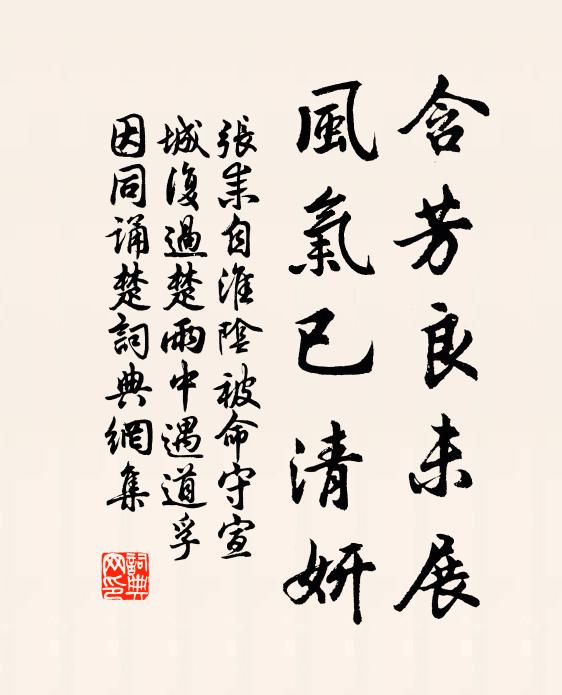 含芳良未展
風氣已清妍
張耒自淮陰被命守宣
城復過楚雨中遇道孚
因同誦楚詞典網集
詞典
网印